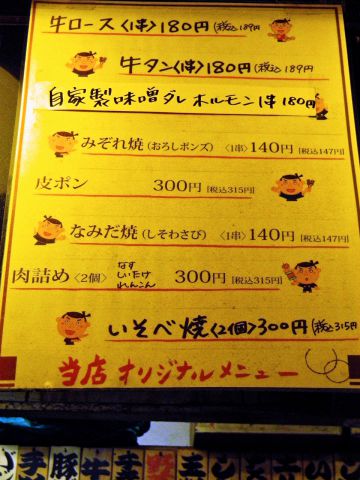 牛ロース〈1串〉180円(税込189円
牛タン〈1串〉180円(税込189円
自家製味噌ダレ ホルモン1串180円
みぞれ焼(おろしポンズ)〈1串〉140円[税込147円]
皮ポン 300円[税込315円]
なみだ焼(しそわさび)〈1串〉140円[税込147円]
肉詰め〈2個〉 なす しいたけ れんこん 300円[税込315円]
いそべ焼〈2個〉300円(税込315円
当店オリジナルメニュー
手 豚 牛